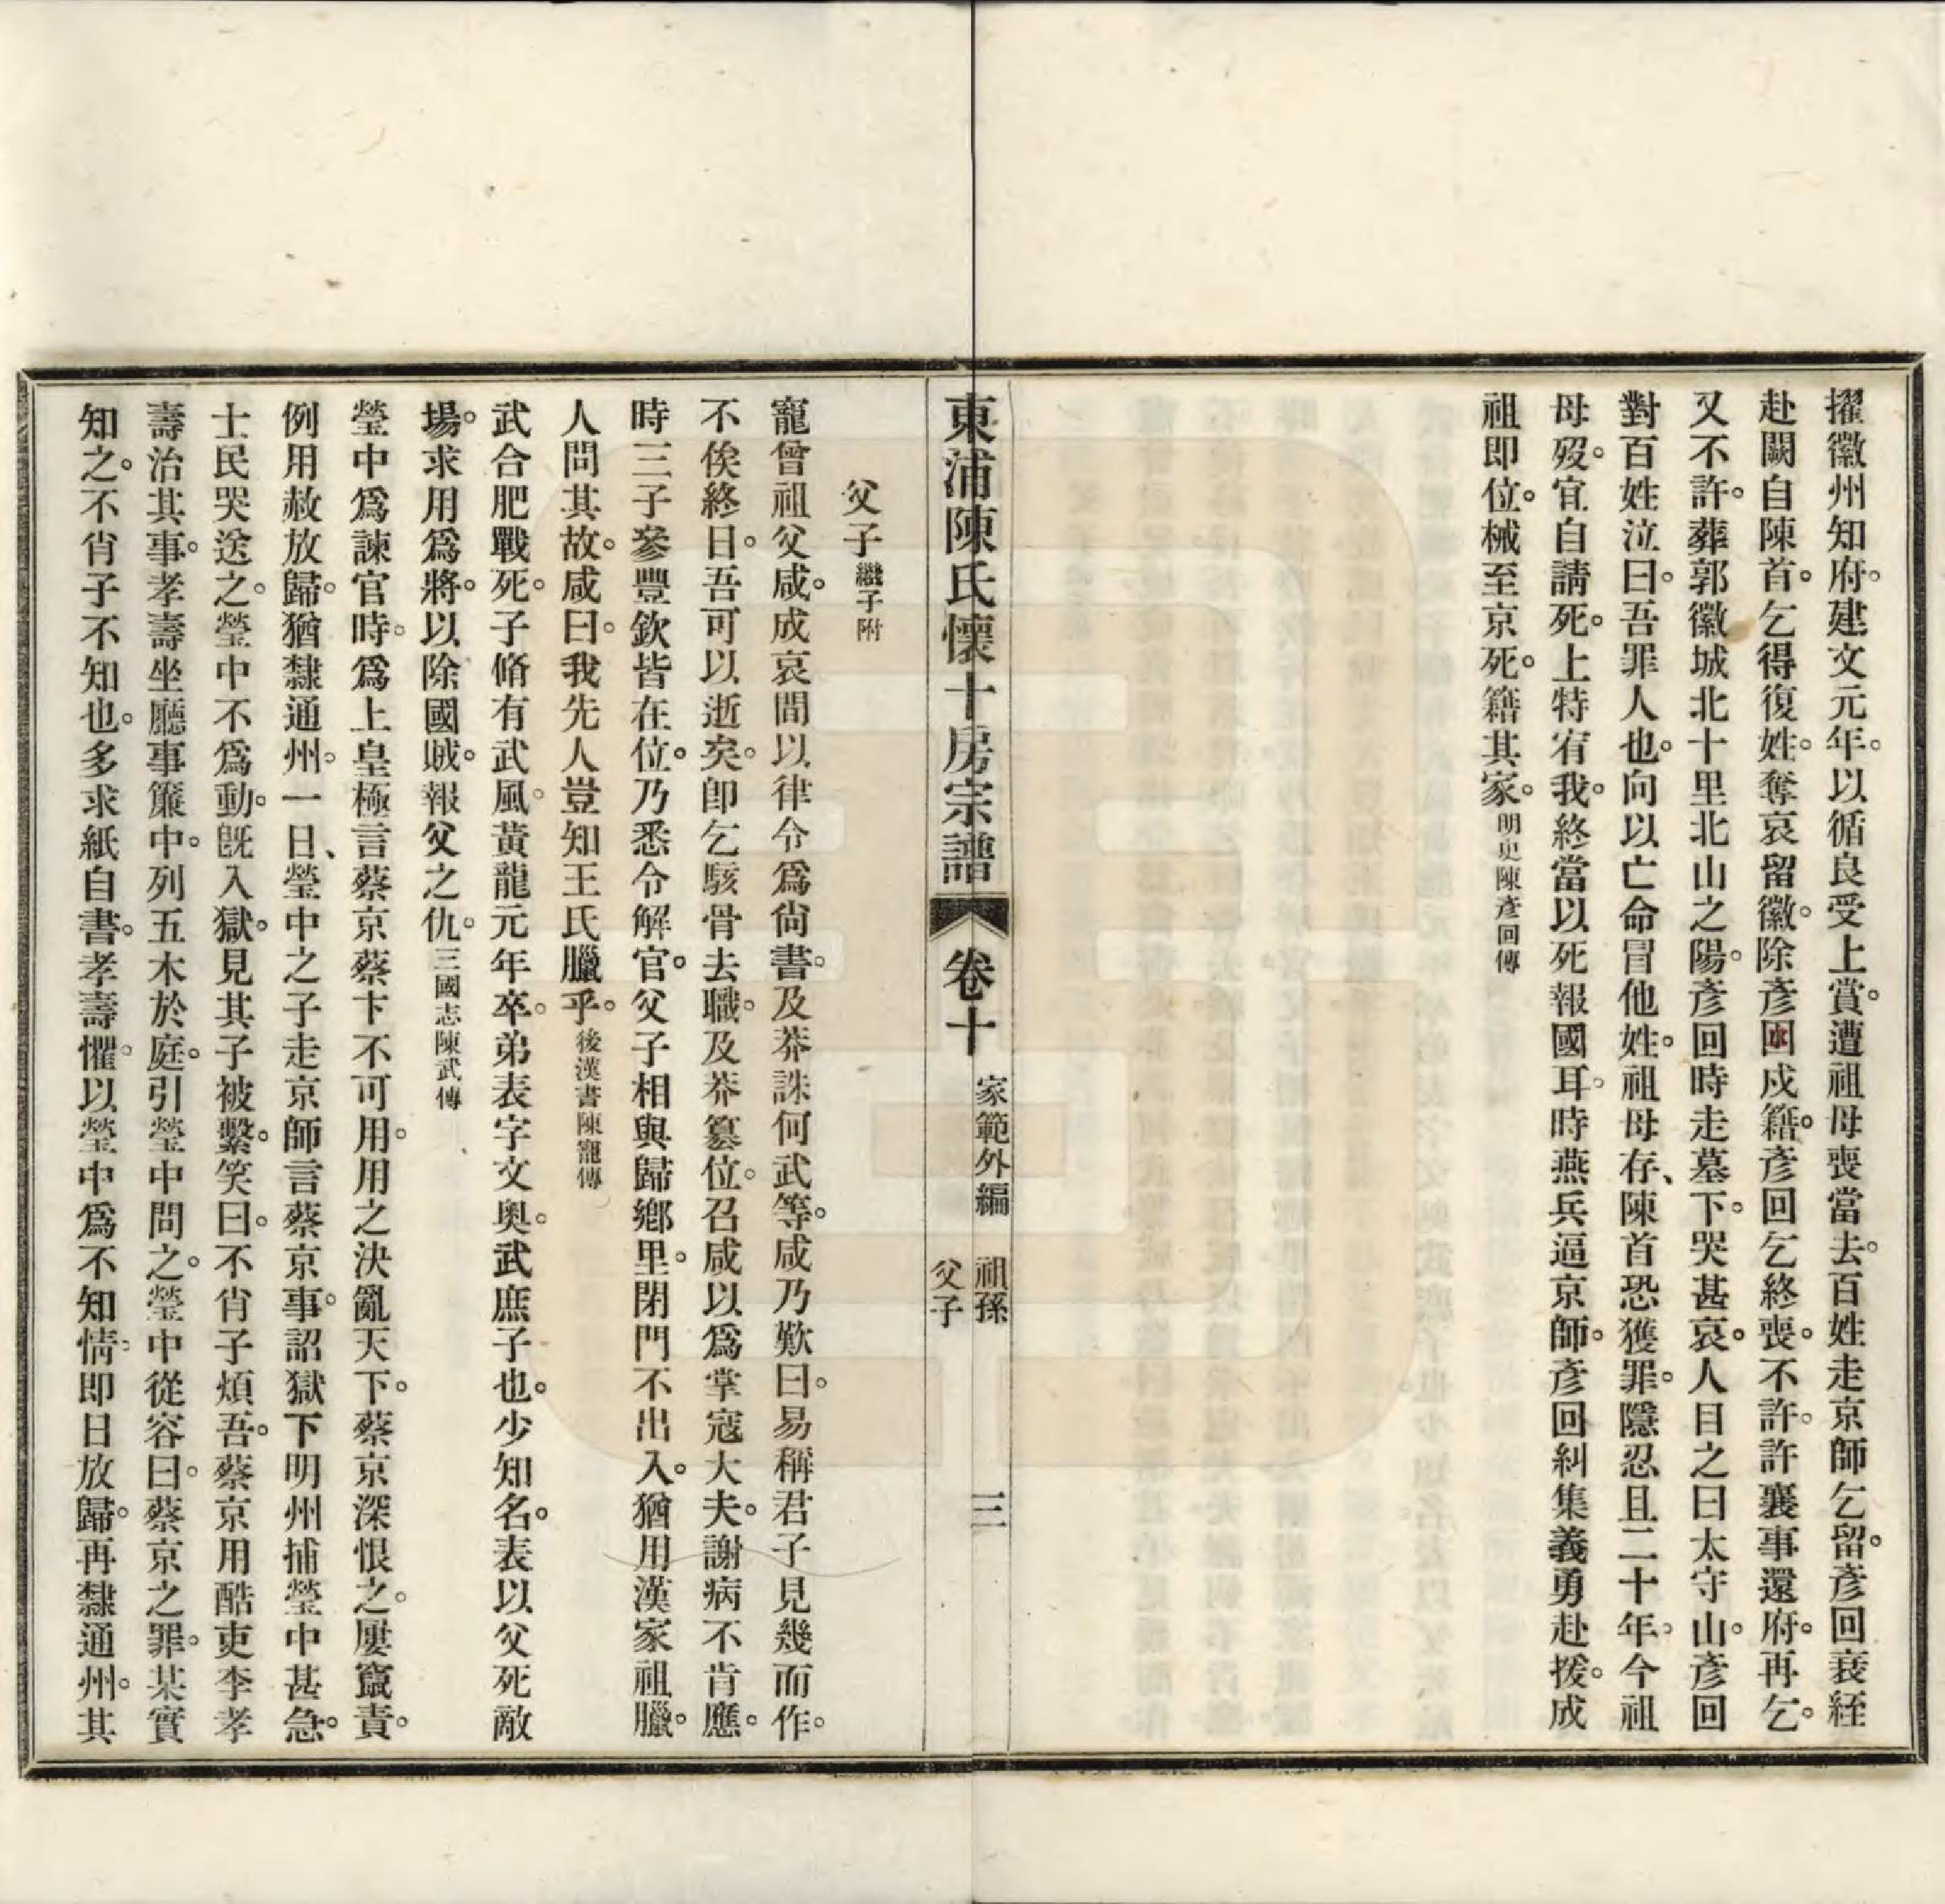 擢徽州知府。建文元年。以循良受上賞。遭祖母喪當去。百姓走京師乞留。彥回衰絰
赴闕自陳首。乞得復姓。奪哀留徽。除彥回戍籍。彥回乞終喪。不許。許襄事還府。再乞。
又不許。葬郭徽城北十里北山之陽。彥回時走墓下。哭甚哀。人目之曰太守山。彥回
對百姓泣曰。吾罪人也。向以亡命冒他姓。祖母存、陳首恐獲罪。隱忍且二十年。今祖
母歿。宜自請死。上特宥我。終當以死報國耳。時燕兵逼京師。彥回糾集義勇赴援。成
祖即位。械至京死。籍其家。明史陳彥回傳
東浦陳氏懷十房宗譜 卷十 家範外編 祖孫 父子 三
父子 繼子附
寵曾祖父咸。成哀間以律令爲尙書。及莽誅何武等。咸乃歎曰。易稱君子見幾而作。
不俟終日。吾可以逝矣。卽乞骸骨去職。及莽簒位。召咸以爲掌寇大夫。謝病不肯應。
時三子參豐欽皆在位。乃悉令解官。父子相與歸鄕里。閉門不出入。猶用漢家祖臘。
人問其故。咸曰。我先人豈知王氏臘乎。後漢書陳寵傳
武合肥戰死。子脩有武風。黃龍元年卒。弟表字文奧。武庶子也。少知名。表以父死敵
場。求用爲將。以除國賊。報父之仇。三國志陳武傳
瑩中爲諫官時。爲上皇極言蔡京蔡卞不可用。用之決亂天下。蔡京深恨之。屢竄責。
例用赦放歸。猶隸通州。一日、瑩中之子走京師言蔡京事。詔獄下明州捕瑩中甚急。
士民哭送之。瑩中不爲動。旣入獄。見其子被繫。笑曰。不肖子煩吾。蔡京用酷吏李孝
壽治其事。孝壽坐廳事簾中。列五木於庭。引瑩中問之。瑩中從容曰。蔡京之罪。某實
知之。不肖子不知也。多求紙自書。孝壽懼。以瑩中爲不知情。即日放歸。再隸通州。其